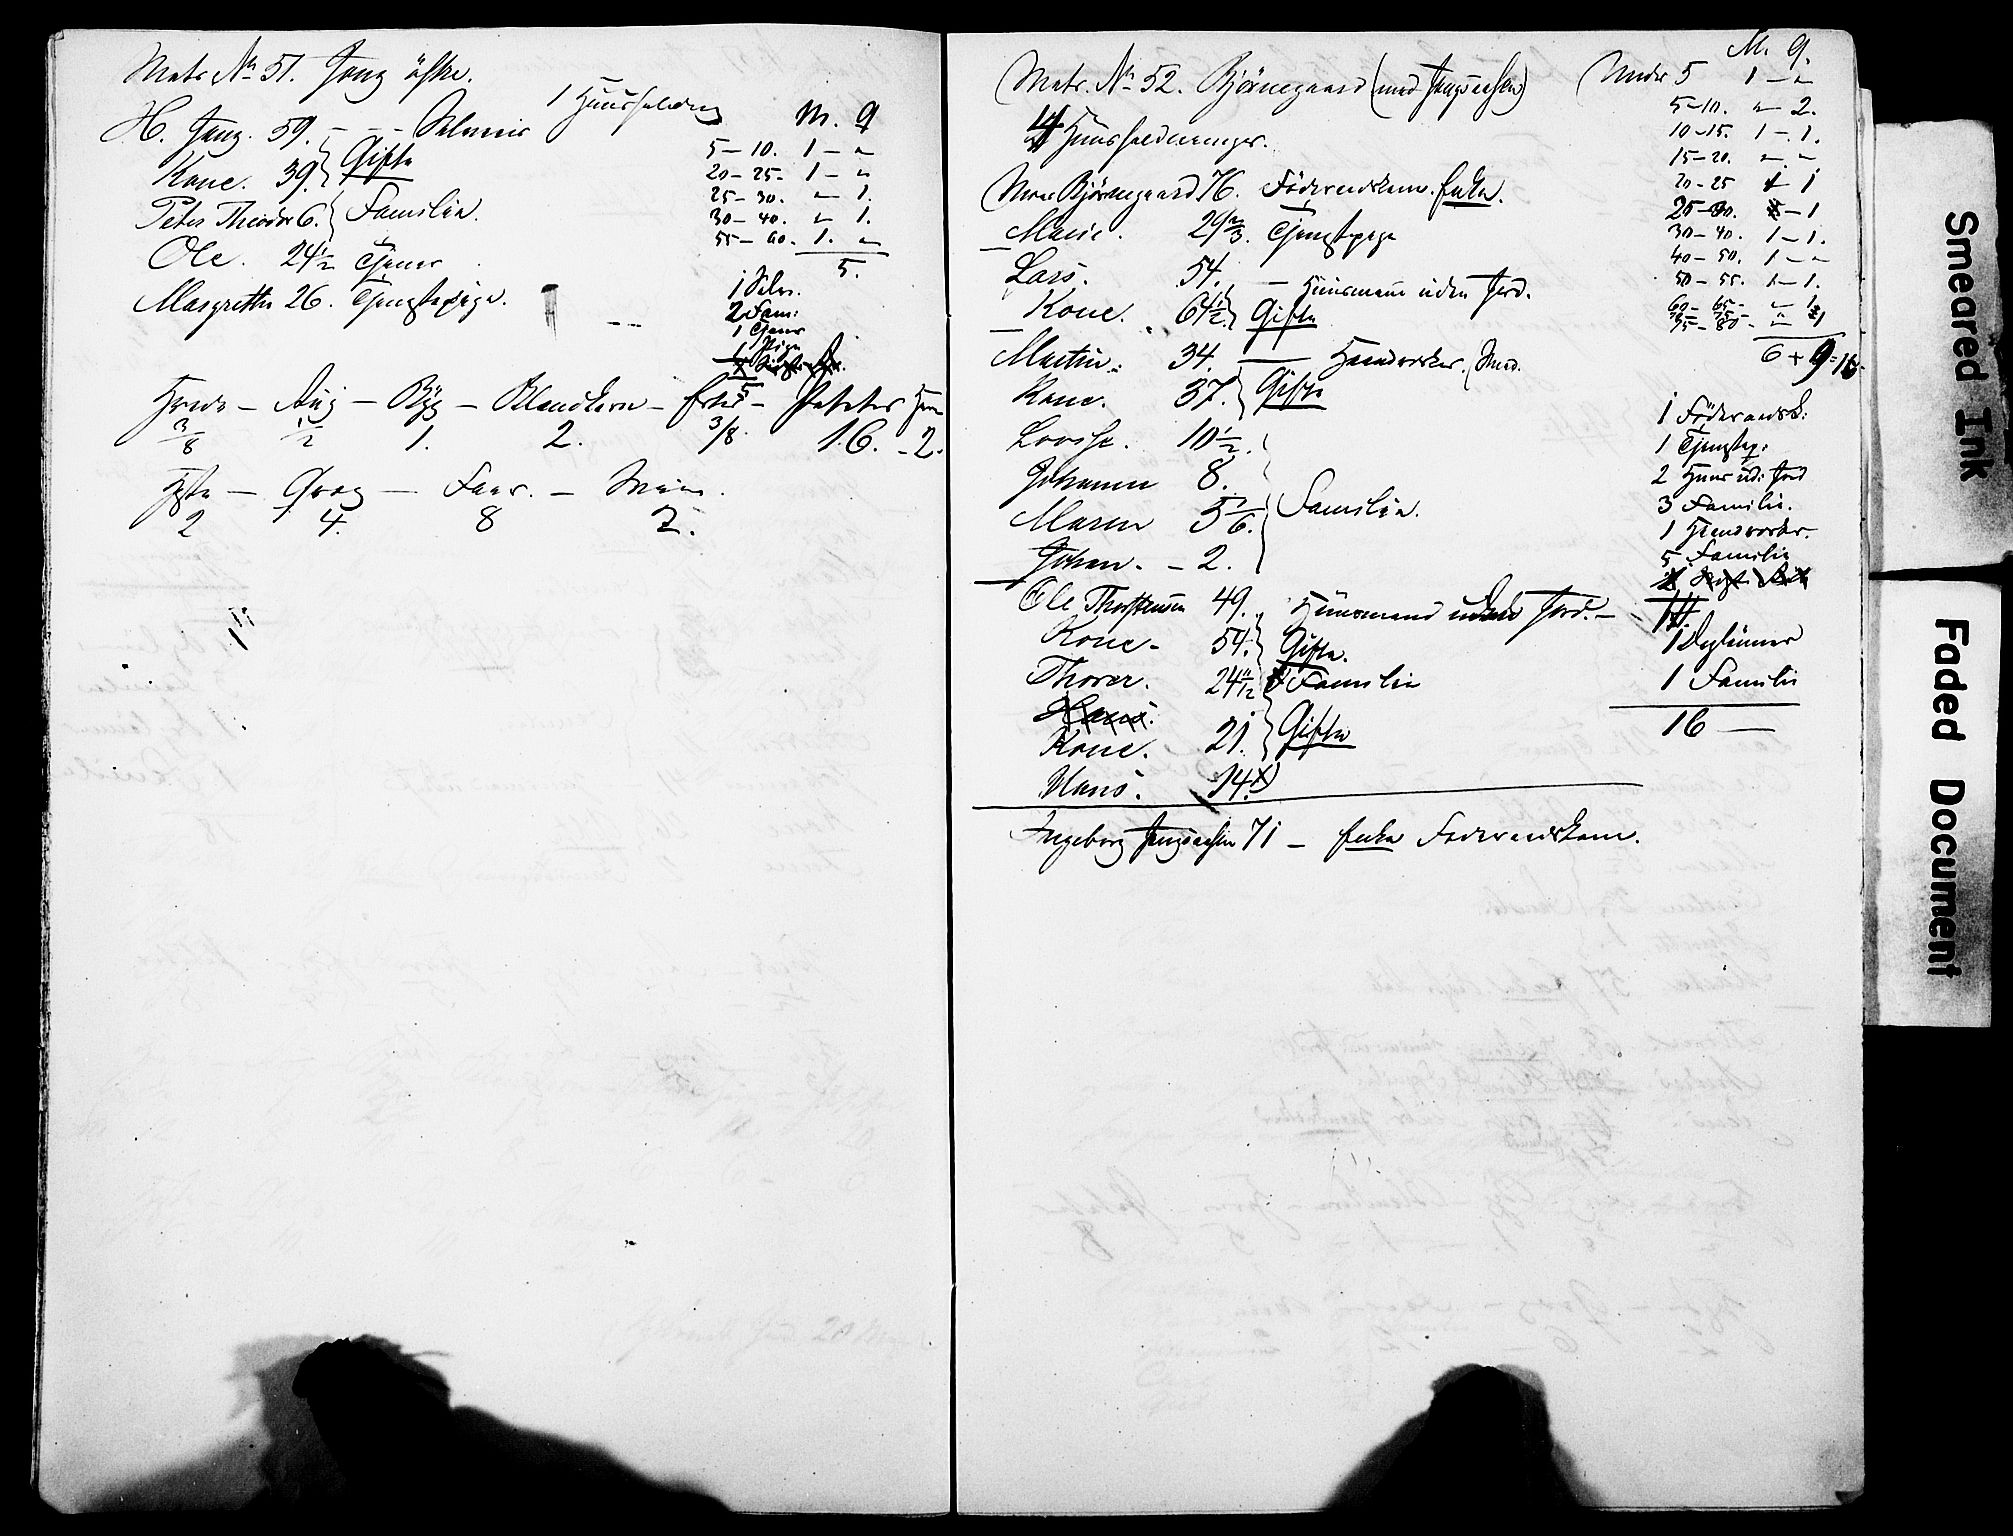 Matr. No 51. Jong östre.
1 Huusholdning
M. Q
H. Jong. 59. - - - Selveier
5-10. 1 - "
Kone. 39. Gifte
20-25. 1 - "
25-30. " 1.
Peter Theodor 6. Familie.
30-40. " 1.
55-60. 1. "
Ole. 24½ Tjener
5.
Margrethe 26. Tjenestepige.
1 Selv.
2 Fam:
1 Tjener
1 Pige
5
Hvede - Rug - Byg - Blandkorn - Erter - Poteter
3/8 1/2 1. 2. 3/8. 16. - 2.
Heste - Qvæg - Faar. - Sviin.
2 4. 8 2.
Matr. No 52. Björnegaard (med
4 Huusholdninger.
Björnegaard 76. Föderaadskone. Enke.
Marie. 29 2/3. Tjenestepige
Lars. 54. - Huusmand uden Jord.
Kone. 64½. Gifte
Martin. 34. - Haandverker. Smed.
Kone. 37. Gifte
Lovise. 10½.
Johanne 8.
Maren 5 1/6. Familie.
Johan. - 2.
Ole Thorstensen 49. Huusmand uden Jord. -
Kone - 54. Gifte.
Thorer. 24 Familie
Hans.
Kone. 21. Gifte
Hans. 14.
Ingeborg 71 - Enke Föderaadskone.
M. Q.
Under 5 1 - "
5-10. " 2.
10-15. 1 - 1.
15-20. " - "
20-25 1 1
25-30. - 1
30-40. 1 - 1.
40-50. 1 - "
50-55. 1 - 1.
60-65 - " 1
75-80 - " 1
6 + 9 = 15
1 Föderaadsk:
1 Tjenestep:
2 Huus ud: Jord
3 Familie.
1 Haandverker.
5 Familie
1 Daglönner
1 Familie
16 -
Smeared Ink
Faded Document